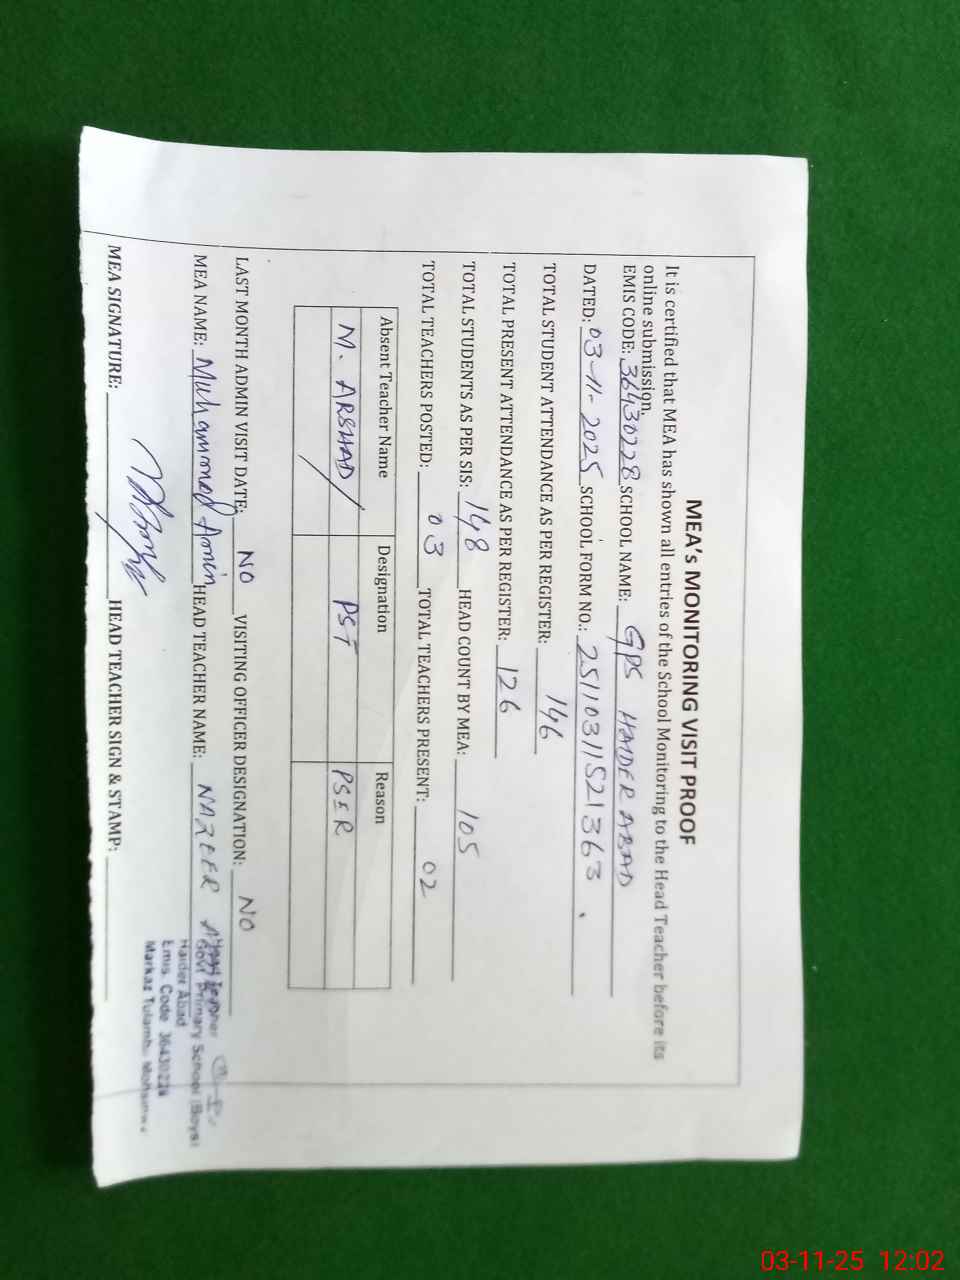 MEA's MONITORING VISIT PROOF
It is certified that MEA has shown all entries of the School Monitoring to the Head Teacher before its
online submission.
EMIS CODE: 36430228 SCHOOL NAME: GPS HAIDER ABAD
DATED: 03-11-2025 SCHOOL FORM NO.: 2511031152 1363
TOTAL STUDENT ATTENDANCE AS PER REGISTER: 146
TOTAL PRESENT ATTENDANCE AS PER REGISTER: 126
TOTAL STUDENTS AS PER SIS: 148 HEAD COUNT BY MEA: 105
TOTAL TEACHERS POSTED: 03 TOTAL TEACHERS PRESENT: 02
Absent Teacher Name Designation Reason
M. ARSHAD PST PSER
LAST MONTH ADMIN VISIT DATE: NO VISITING OFFICER DESIGNATION: NO
MEA NAME: Muhammad Amin HEAD TEACHER NAME: NAZEER
MEA SIGNATURE: HEAD TEACHER SIGN & STAMP:
Govt Primary School (Boys)
Haider Abad
Emis. Code 36430228
Markaz Tulamba
03-11-25 12:02